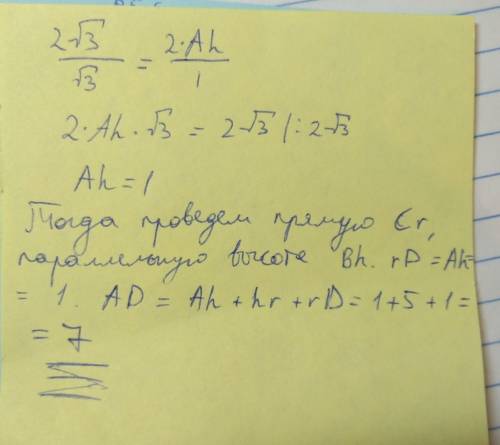 2√3/√3 = 2·Ah/1
2·Ah·√3 = 2√3 |:2√3
Ah = 1
Тогда проведем прямую Cr,
параллельную высоте Bh. rD = Ah =
= 1. AD = Ah + hr + rD = 1+5+1 =
= 7